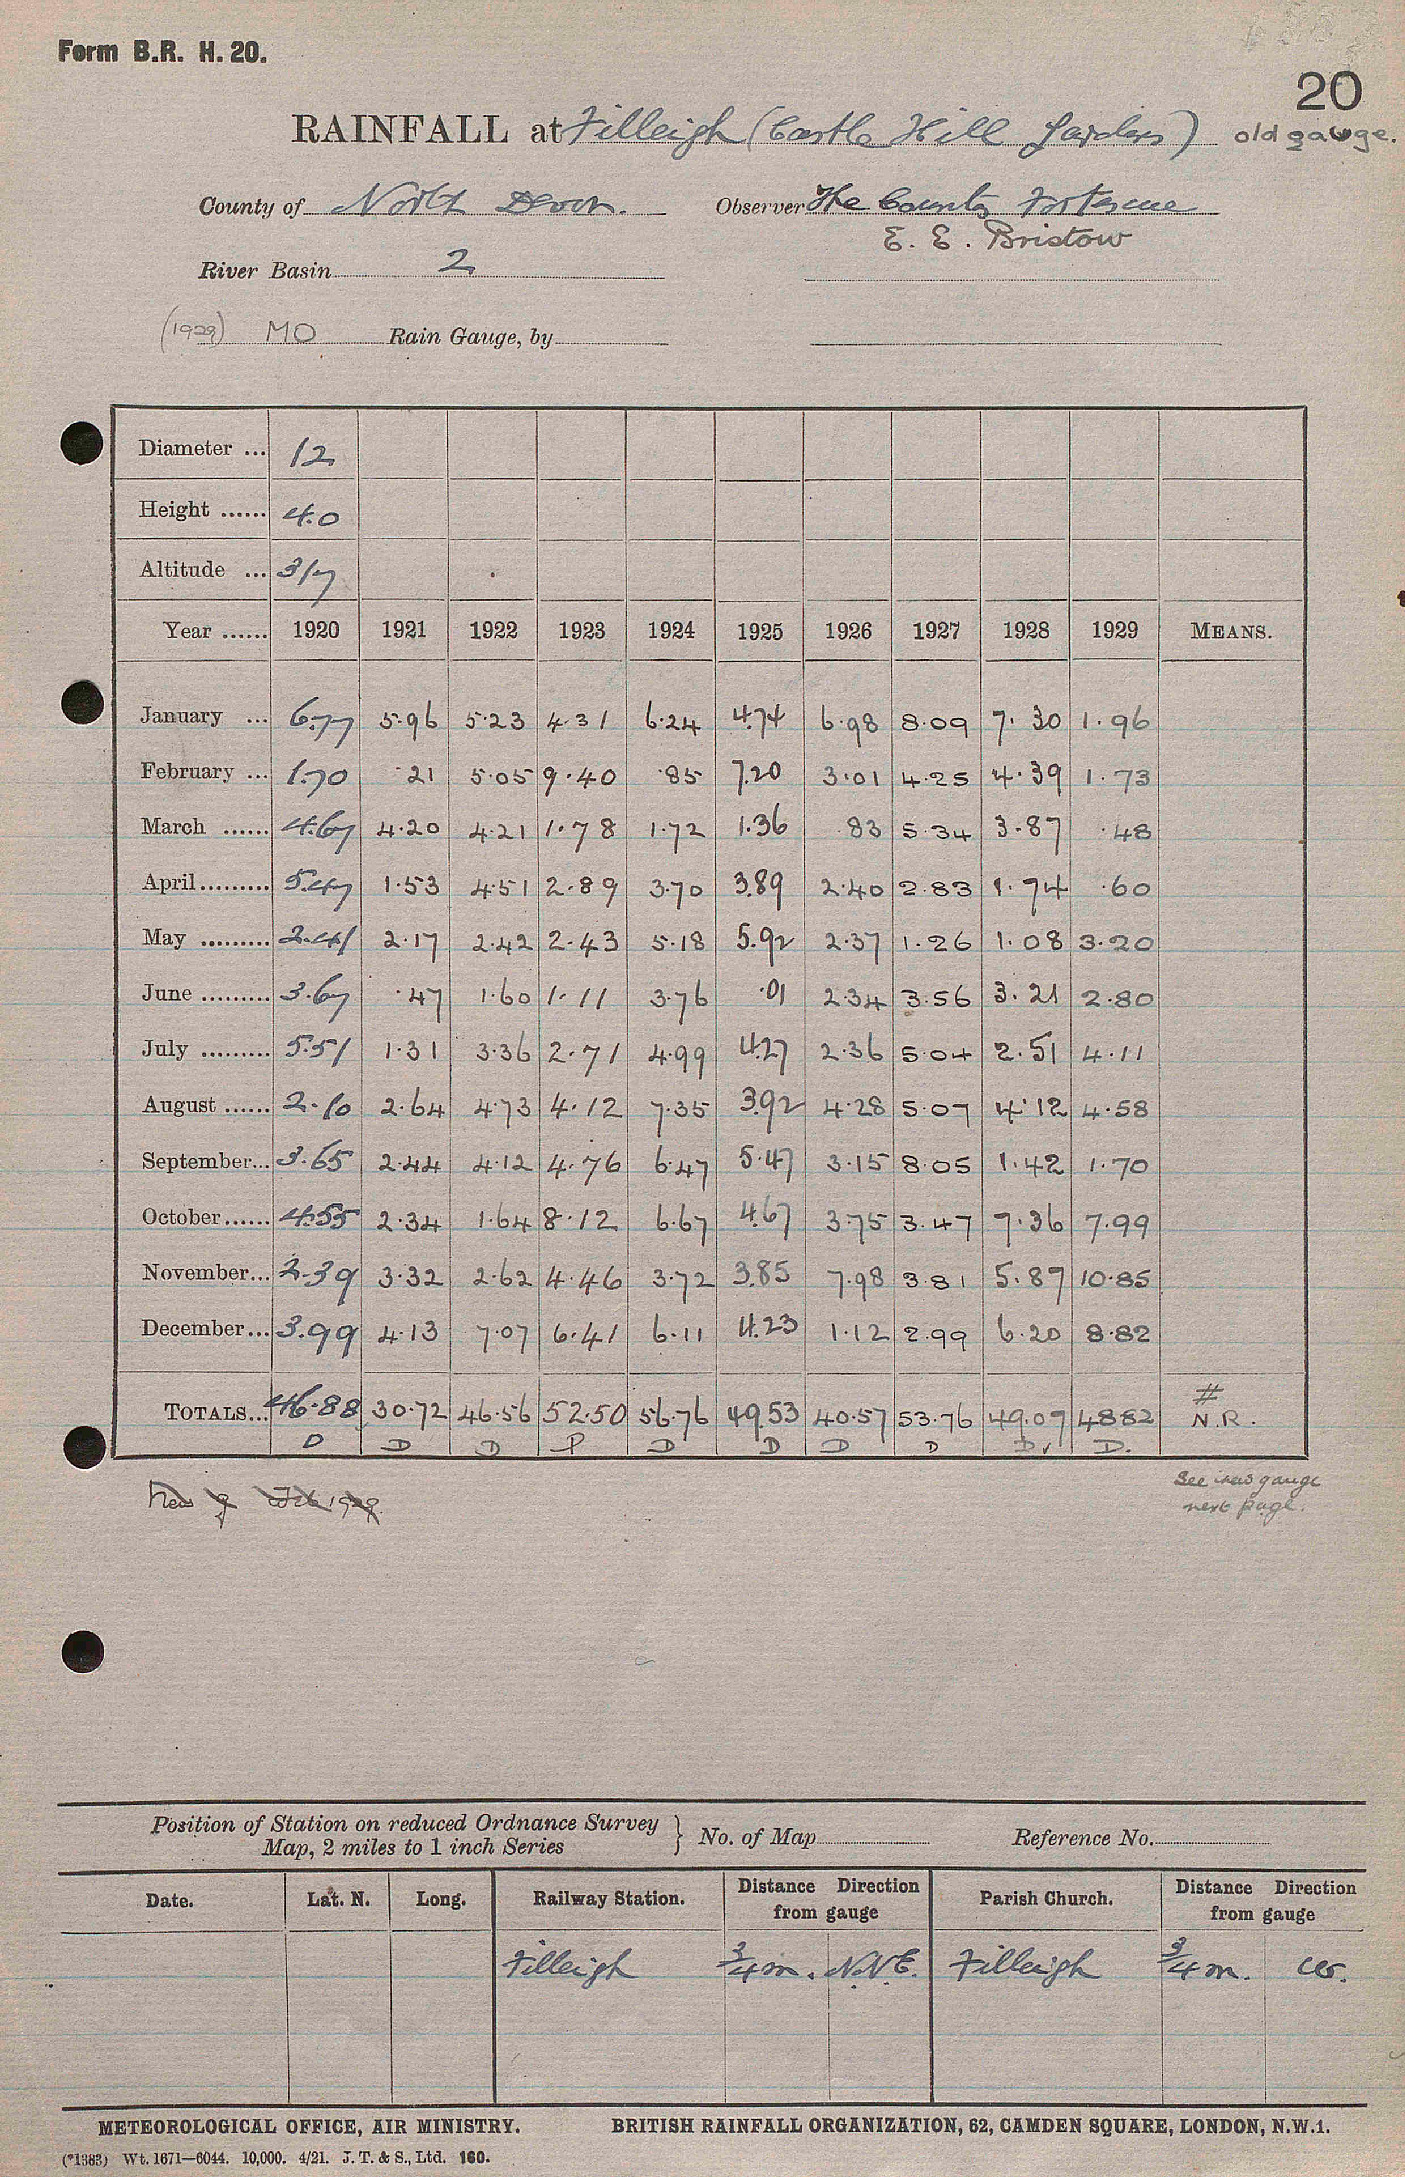 Form B.R. H. 20.
20
RAINFALL at Filleigh (Castle Hill Gardens) old gauge.
County of North Devon. Observer The County Fortescue
E. E. Bristow
River Basin 2
(1929) MO Rain Gauge, by
Diameter ... 12
Height ...... 4.0
Altitude ... 317
Year ...... 1920 1921 1922 1923 1924 1925 1926 1927 1928 1929 MEANS.
January ... 6.77 5.96 5.23 4.31 6.24 4.74 6.98 8.09 7.30 1.96
February ... 1.70 .21 5.05 9.40 .85 7.20 3.01 4.25 4.39 1.73
March ...... 4.67 4.20 4.21 1.78 1.72 1.36 .83 5.34 3.87 .48
April ......... 5.47 1.53 4.51 2.89 3.70 3.89 2.40 2.83 1.74 .60
May ......... 2.41 2.17 2.42 2.43 5.18 5.92 2.37 1.26 1.08 3.20
June ......... 3.67 .47 1.60 1.11 3.76 .01 2.34 3.56 3.21 2.80
July ......... 5.51 1.31 3.36 2.71 4.99 4.27 2.36 5.04 2.51 4.11
August ...... 2.10 2.64 4.73 4.12 7.35 3.92 4.28 5.07 4.12 4.58
September... 3.65 2.44 4.12 4.76 6.47 5.47 3.15 8.05 1.42 1.70
October...... 4.55 2.34 1.64 8.12 6.67 4.67 3.75 3.47 7.36 7.99
November... 2.39 3.32 2.62 4.46 3.72 3.85 7.98 3.81 5.87 10.85
December... 3.99 4.13 7.07 6.41 6.11 4.23 1.12 2.99 6.20 8.82
TOTALS... 46.88 30.72 46.56 52.50 56.76 49.53 40.57 53.76 49.07 48.82 # N.R.
D D D P D D D D D. D.
New g Feb 1929.
See new gauge
next page.
Position of Station on reduced Ordnance Survey
Map, 2 miles to 1 inch Series } No. of Map Reference No.
Date. Lat. N. Long. Railway Station. Distance Direction from gauge Parish Church. Distance Direction from gauge
Filleigh 3/4 m. N.N.E. Filleigh 3/4 m.
METEOROLOGICAL OFFICE, AIR MINISTRY. BRITISH RAINFALL ORGANIZATION, 62, CAMDEN SQUARE, LONDON, N.W.1.
(*1383) Wt. 1671—6044. 10,000. 4/21. J. T. & S., Ltd. 160.